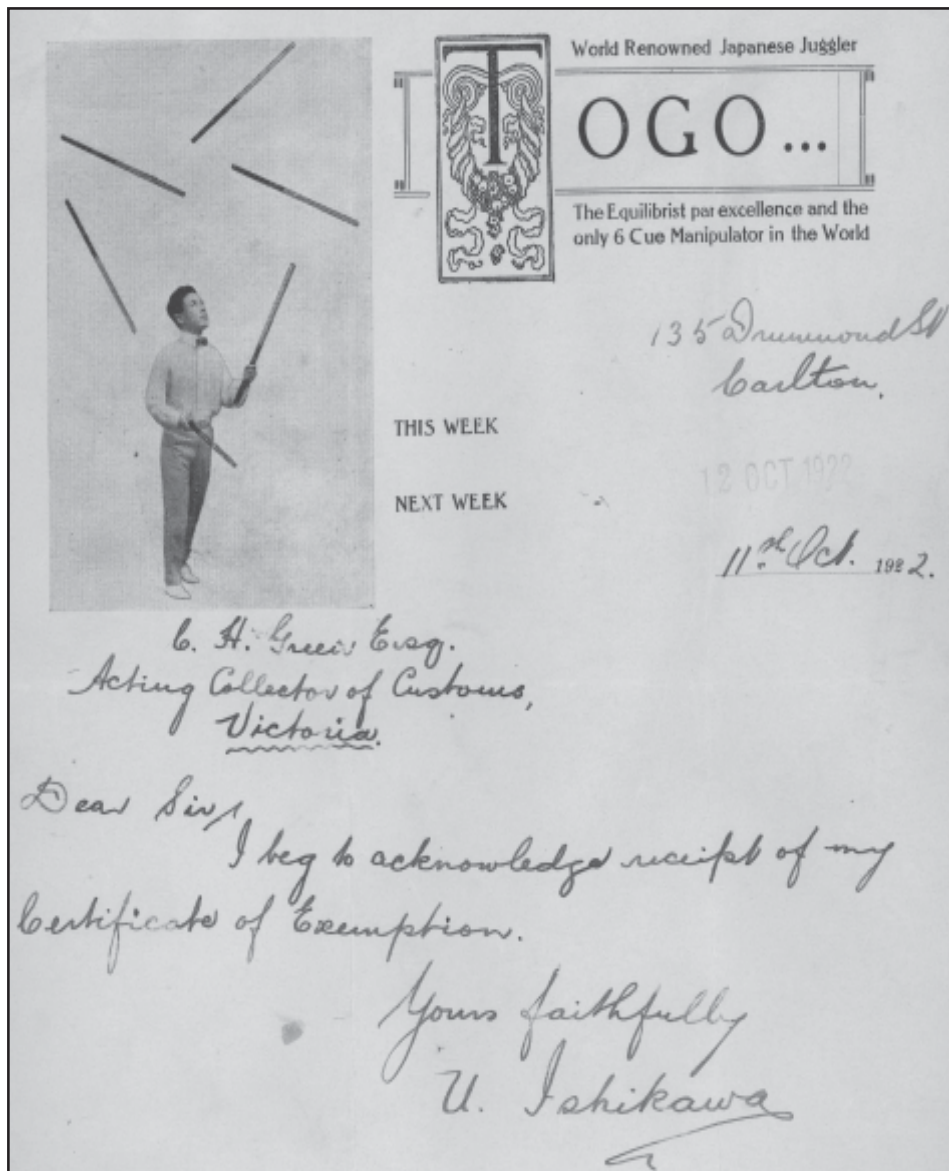 World Renowned Japanese Juggler
TOGO...
The Equilibrist par excellence and the
only 6 Cue Manipulator in the World
135 Drummond St
Carlton,
THIS WEEK
12 OCT 1922
NEXT WEEK
11th Oct. 1922.
C. H. Green Esq.
Acting Collector of Customs,
Victoria.
Dear Sir,
I beg to acknowledge receipt of my
Certificate of Exemption.
Yours faithfully
U. Ishikawa